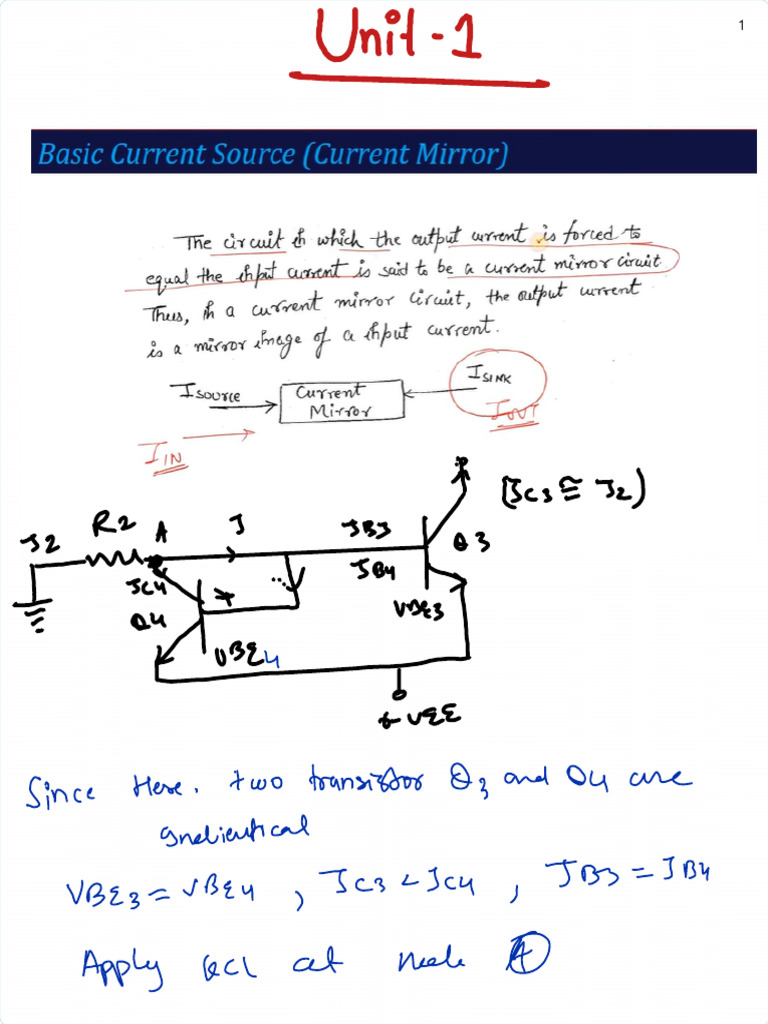 1
Unit-1
Basic Current Source (Current Mirror)
The circuit in which the output current is forced to
equal the input current is said to be a current mirror circuit
Thus, in a current mirror circuit, the output current
is a mirror image of a input current.
ISOURCE
Current
Mirror
ISINK
IOUT
IIN
(IC3 ≅ I2)
I2
R2
A
I
IB3
Q3
IC4
IB4
VBE3
Q4
VBE4
-VEE
Since Here. two transistor Q3 and Q4 are
VBE3 = VBE4 , IC3 < IC4 , IB3 = IB4
Apply KCL at node A